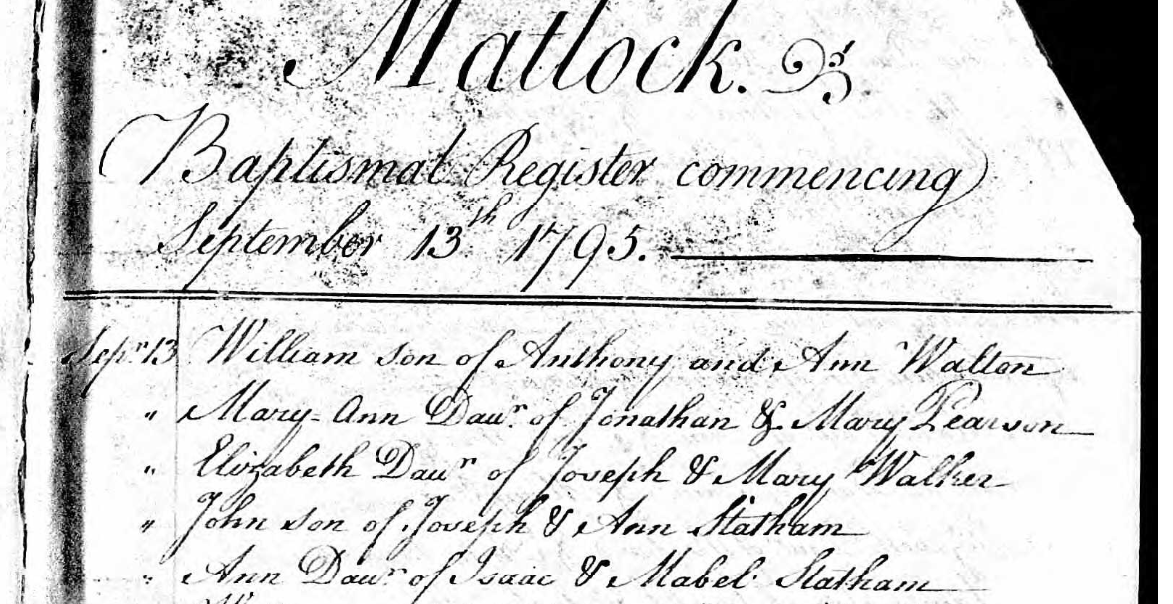 Matlock.
Baptismal Register commencing
September 13th 1795.
Sepr 13 William son of Anthony and Ann Walton
" Mary-Ann Daur. of Jonathan & Mary Pearson
" Elizabeth Daur of Joseph & Mary Walker
" John son of Joseph & Ann Statham
" Ann Daur of Isaac & Mabel Statham